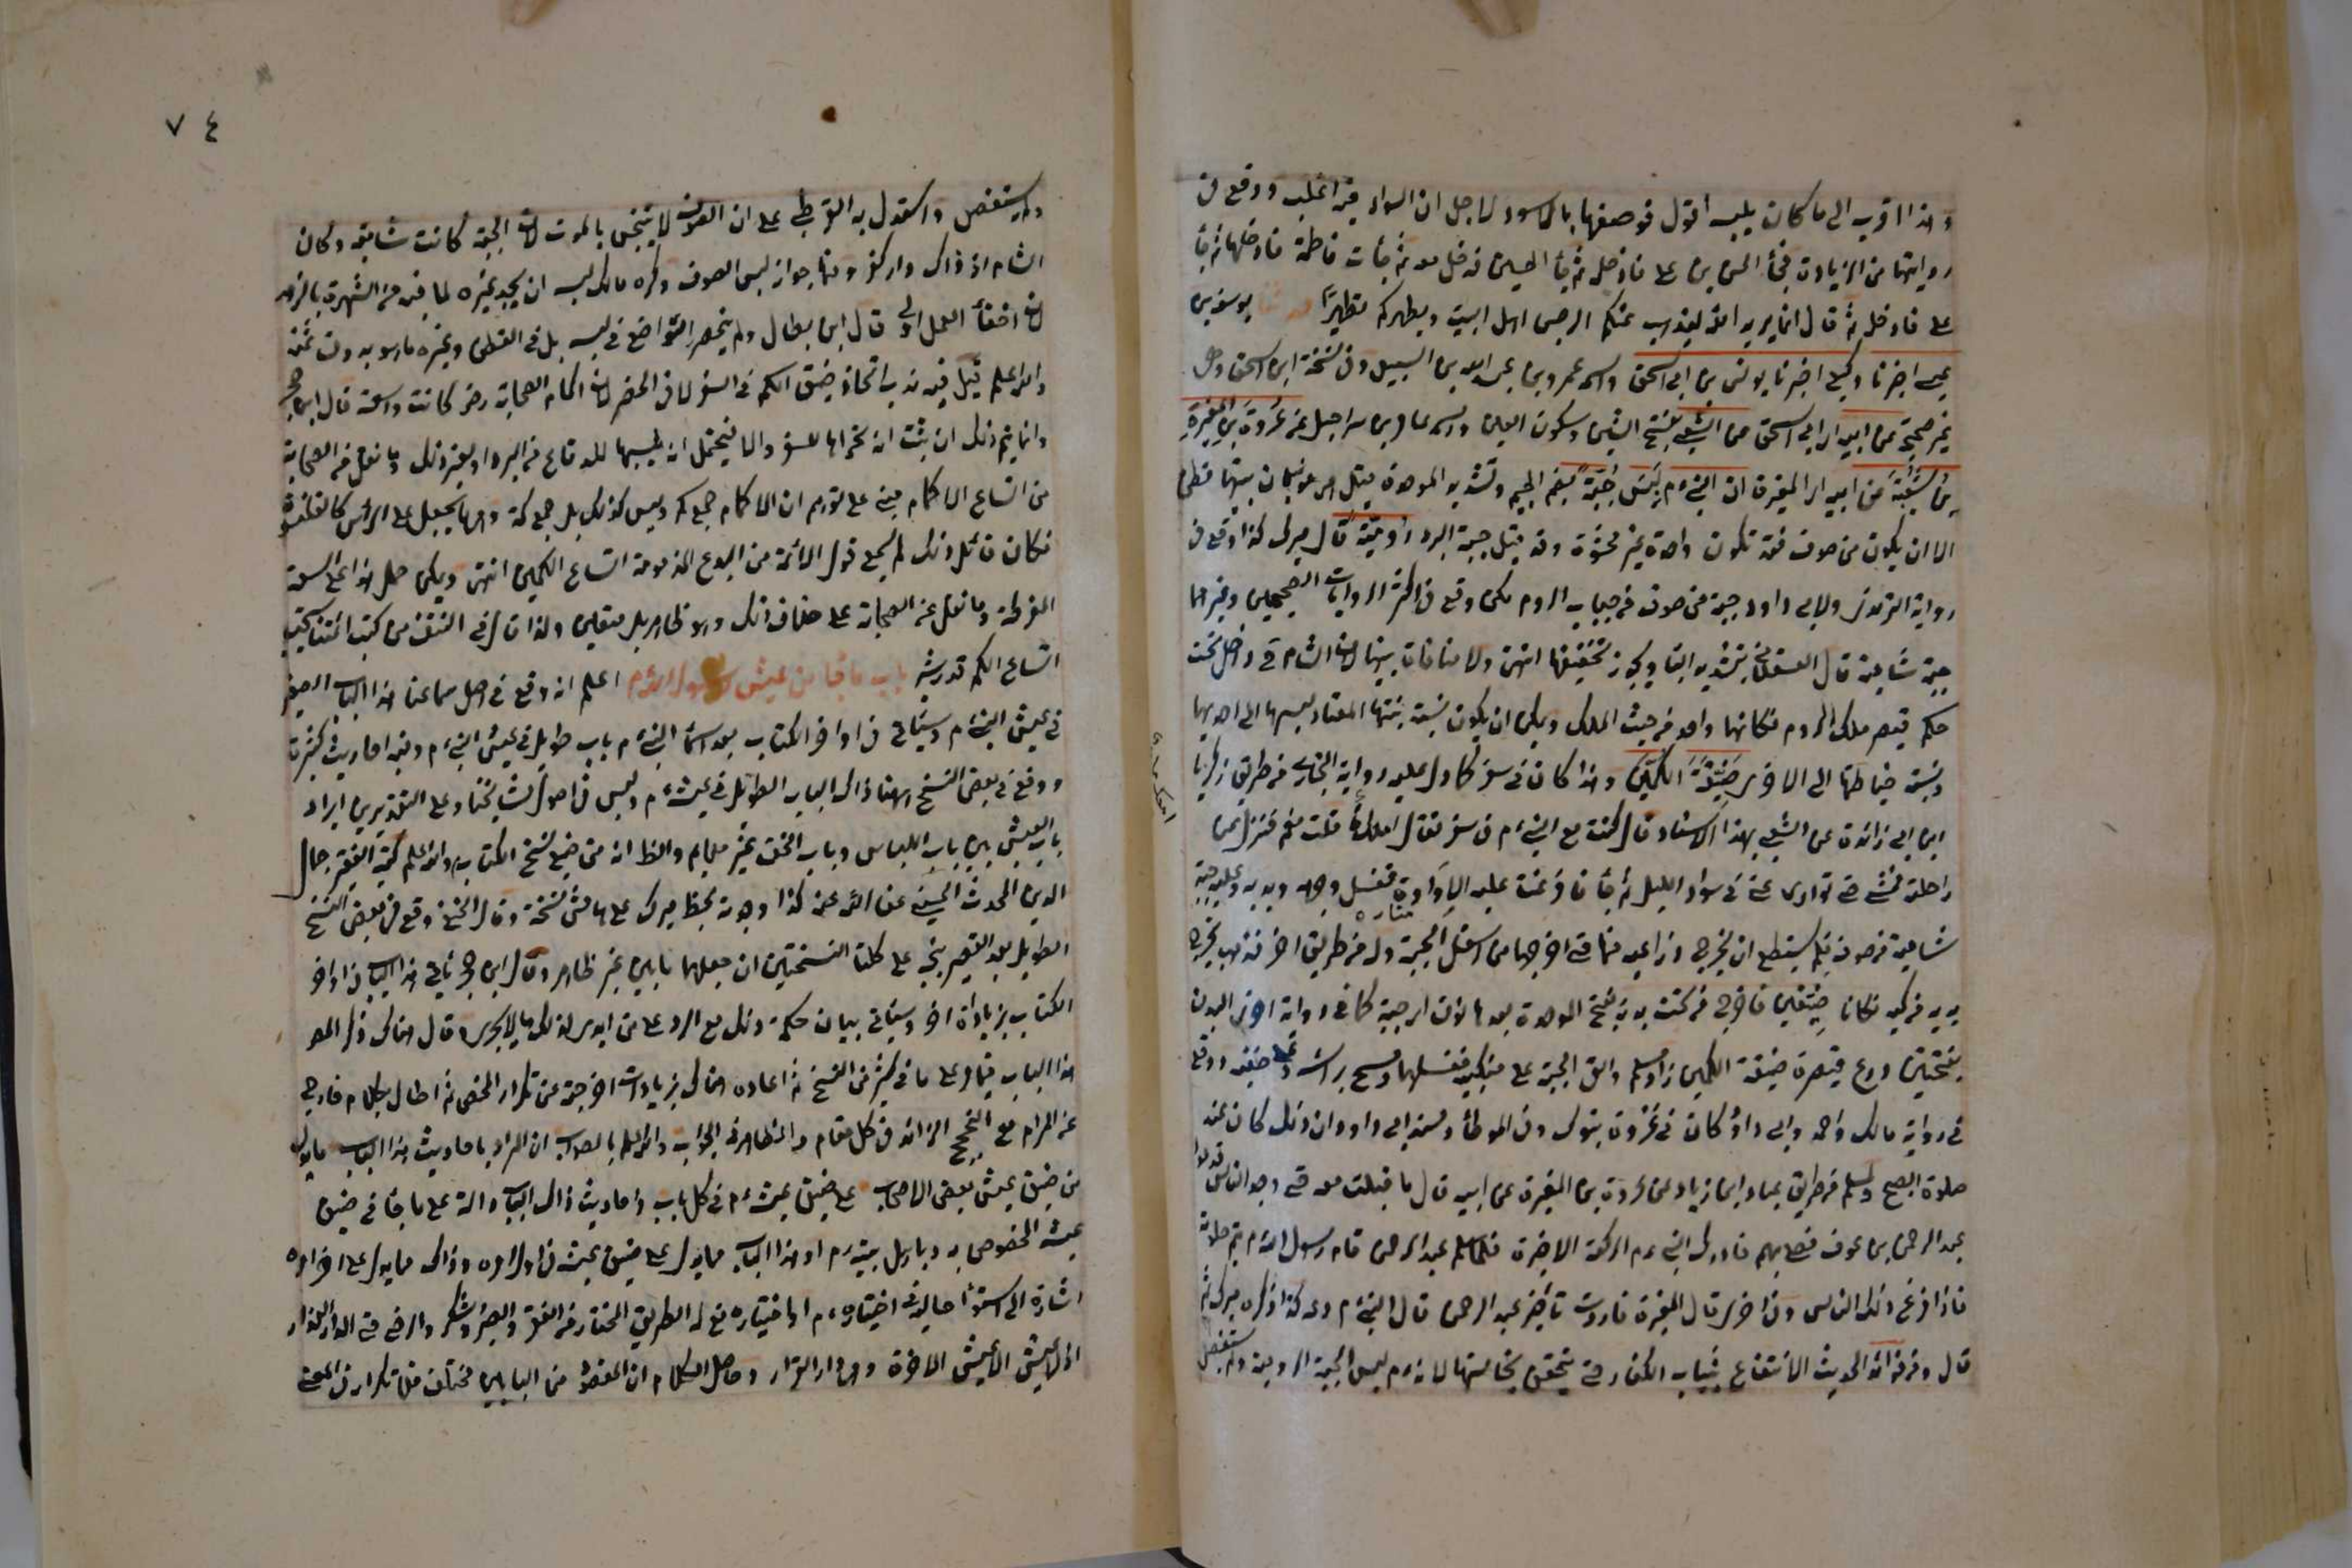 وهذا اقرب الى ما كان يلبسه اقول فوصفها بالاسود لاجل ان السواد فيه اغلب ووقع في
روايتها من الزيادة فجأ الحسن بن علي فادخله ثم جأ الحسين فدخل معه ثم جأت فاطمة فادخلها ثم جأ
علي فادخله ثم قال انما يريد الله ليذهب عنكم الرجس اهل البيت ويطهركم تطهيرا يوسف بن
عيسى اخبرنا وكيع اخبرنا يونس بن ابي اسحق واسمه عمرو بن عبد الله بن السبيعي وفي نسخة ابن اسحق وهي
غير صحيحة عن ابيه اي ابي اسحق عن الشعبي بفتح الشين وسكون العين واسمه عامر بن شراحيل عن عروة بن المغيرة
بن شعبة عن ابيه اي المغيرة ان النبي م لبس جبة بضم الجيم وتشديد الموحدة قيل هي ثوبان بينهما قطن
الا ان يكون من صوف فقد تكون واحدة غير محشوة وقد قيل جبة البرد رومية قال ميرك كذا وقع في
رواية الترمذي ولابي داود جبة من صوف من جباب الروم لكن وقع في اكثر الروايات الصحيحين وغيرهما
جبة شامية قال العسقلاني بتشديد اليا ويجوز تخفيفها انتهى ولا منافاة بينهما لان الشام ح داخل تحت
حكم قيصر ملك الروم فكانهما واحد من حيث الملك ويمكن ان يكون نسبة هيئتها المعتاد لبسها الى احديهما
ونسبة خياطتها الى الاخرى ضيقة الكمين وهذا كان في سفر كما دل عليه رواية البخاري من طريق زكريا
ابن ابي زائدة عن الشعبي بهذا الاسناد قال كنت مع النبي م في سفر فقال امعك ماء قلت نعم فنزل عن
راحلته فمشى حتى توارى عني في سواد الليل ثم جأ فافرغت عليه الاداوة فغسل وجهه ويديه وعليه جبة
شامية من صوف فلم يستطع ان يخرج ذراعيه منها حتى اخرجهما من اسفل الجبة وله من طريق اخر فذهب يخرج
يديه من كميه فكانا ضيقين فاخرج من تحت بدنه بفتح الموحدة بعدها نون اي جبة كما في رواية اخرى البدن
بفتحتين درع قصيرة ضيقة الكمين زاد مسلم والقى الجبة على منكبيه فغسلهما ومسح برأسه وعلى خفيه ووقع
في رواية مالك واحمد وابي داؤد كان في غزوة تبوك وفي الموطأ ومسند ابي داود ان ذلك كان عند
صلوة الصبح ولمسلم من طريق عباد بن زياد عن عروة بن المغيرة عن ابيه قال فاقبلت معه حتى وجد الناس قدموا
عبد الرحمن بن عوف فصلى بهم فادرك النبي م الركعة الاخيرة فلما سلم عبد الرحمن قام رسول الله م يتم صلوته
فافزع ذلك الناس وفي اخرى قال المغيرة فاردت تأخير عبد الرحمن قال النبي م دعه كذا ذكره ميرك ثم
قال ومن فوائد الحديث الانتفاع بثياب الكفار حتى يتحقق نجاستها لانه م لبس الجبة الرومية ولم يستفصل
٧٤
ولم يستفصل واستدل به القرطبي على ان الصوف لا ينجس بالموت لان الجبة كانت شامية وكان
الشام اذ ذاك دار كفر ومنها جواز لبس الصوف وكره مالك لبسه ان يجد غيره لما فيه من الشهرة بالزهد
لان اخفأ العمل اولى قال ابن بطال ولم ينحصر التواضع في لبسه بل في القطن وغيره ما هو بدون ثمنه
والله اعلم قيل فيه ندب اتخاذ ضيق الكم في السفر لا في الحضر لان اكمام الصحابة رض كانت واسعة قال ابن حجر
وانما يتم ذلك ان ثبت انه تحراها للسفر والا فيحتمل انه لبسها للدفاع من البرد او لغير ذلك وما نقل من الصحابة
من اتساع الاكمام مبني على توهم ان الاكمام جمع كم وليس كذلك بل جمع كمة وهي ما يجعل على الرأس كالقلنسوة
فكان قائل ذلك لم يسمع قول الائمة من البدع المذمومة اتساع الكمين انتهى ويمكن حمل هذا على السعة
المفرطة وما نقل عن الصحابة على خلاف ذلك وهو ظاهر بل متعين ولذا قال في النتف من كتب ائمتنا يستحب
اتساع الكم قدر شبر باب ما جأ في عيش رسول الله م اعلم انه وقع في اصل سماعنا هذا الباب الصغير
في عيش النبي م وسيأتي في اواخر الكتاب بعد اسماء النبي م باب طويل في عيش النبي م وفيه احاديث كثيرة
ووقع في بعض النسخ ههنا ذاك الباب الطويل في عيشه م وليس في اصول مشايخنا وعلى التقديرين ايراد
باب العيش بين باب اللباس وباب الخف غير ملائم والظ انه من صنيع نسخ الكتاب والله اعلم كتبه الفقير جمال
الدين المحدث الحسيني عفى الله عنه كذا وجدته بخط ميرك على هامش نسخة وقال الحنفي وقع في بعض النسخ
الطويل بعد القصير نبه على كلتا النسختين ان جعلهما بابين غير ظاهر وقال ابن حجر يأتي هذا الباب في اواخر
الكتاب بزيادات اخر وسيأتي بيان حكمة ذلك مع الرد على من ابدى لذلك ما لا يجدي وقال هناك ذكر المص
هذا الباب فيما مر على ما في كثير من النسخ ثم اعاده هناك بزيادات اخرجته عن تكرار المحض ثم اطال بكلام خارج
عن المرام مع التبجح الزائد في كل مقام والظاهر في الجواب والله اعلم بالصواب ان المراد باحاديث هذا الباب ما يدل
من ضيق عيش بعض الاصحاب على ضيق عيشه م في كل باب واحاديث ذاك الباب دالة على ما جأ في ضيق
عيشه المخصوص به وباهل بيته م او هذا الباب مما يدل على ضيق عيشه في اول امره وذاك مما يدل على اخر امره
اشارة الى استوأ حاليه في اختياره م او اختياره تع له الطريق المختار من الفقر والصبر والشكر والرضى في الدار الغدار
اذ لا عيش الا عيش الاخرة وهي دار القرار وحاصل الكلام ان المقصود من البابين مختلف فلا تكرار في المعنى